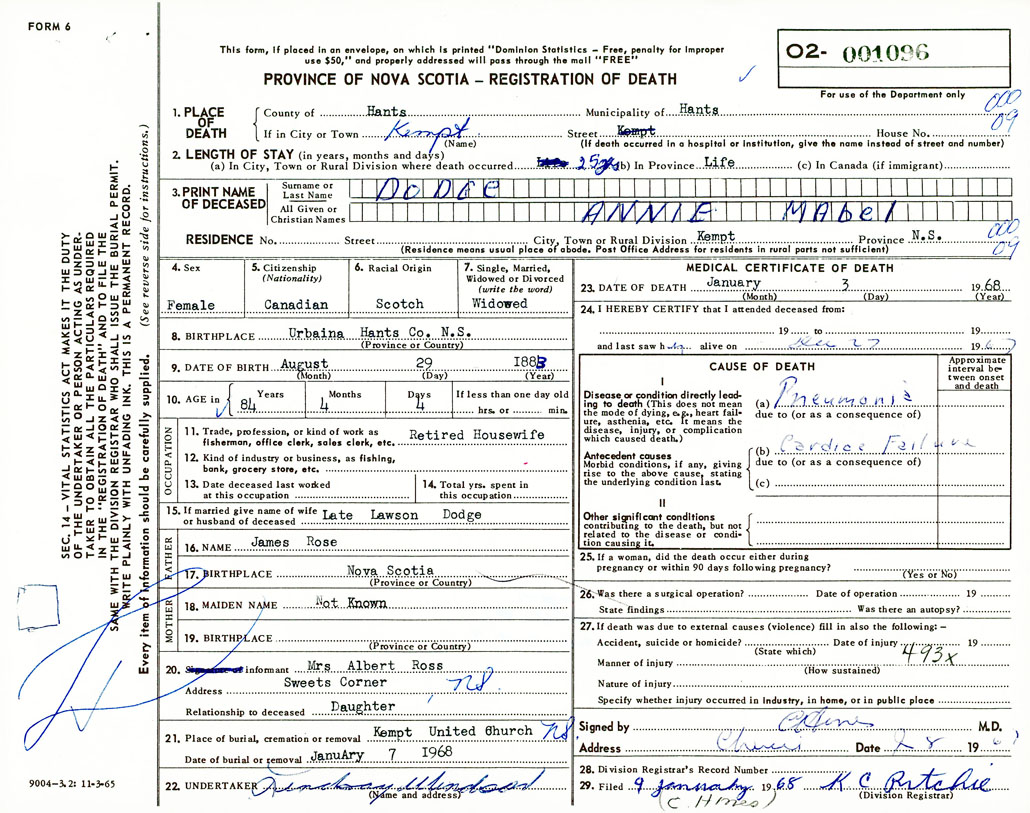 FORM 6
This form, if placed in an envelope, on which is printed "Dominion Statistics – Free, penalty for improper
use $50," and properly addressed will pass through the mail "FREE"
PROVINCE OF NOVA SCOTIA – REGISTRATION OF DEATH
O2- 001096
For use of the Department only
000
09
1. PLACE OF DEATH
County of Hants Municipality of Hants
If in City or Town Kempt Street Kempt House No.
(Name) (If death occurred in a hospital or institution, give the name instead of street and number)
2. LENGTH OF STAY (in years, months and days)
(a) In City, Town or Rural Division where death occurred 25 yrs (b) In Province Life (c) In Canada (if immigrant)
3. PRINT NAME OF DECEASED
Surname or Last Name DODGE
All Given or Christian Names ANNIE MAbel
RESIDENCE No. Street City, Town or Rural Division Kempt Province N.S.
(Residence means usual place of abode. Post Office Address for residents in rural parts not sufficient)
000
09
4. Sex
Female
5. Citizenship
(Nationality)
Canadian
6. Racial Origin
Scotch
7. Single, Married,
Widowed or Divorced
(write the word)
Widowed
8. BIRTHPLACE Urbaina Hants Co. N.S.
(Province or Country)
9. DATE OF BIRTH August 29 1883
(Month) (Day) (Year)
10. AGE in Years Months Days If less than one day old
84 4 4 hrs. or min.
OCCUPATION
11. Trade, profession, or kind of work as
fisherman, office clerk, sales clerk, etc. Retired Housewife
12. Kind of industry or business, as fishing,
bank, grocery store, etc.
13. Date deceased last worked
at this occupation
14. Total yrs. spent in
this occupation
15. If married give name of wife
or husband of deceased Late Lawson Dodge
FATHER
16. NAME James Rose
17. BIRTHPLACE Nova Scotia
(Province or Country)
MOTHER
18. MAIDEN NAME Not Known
19. BIRTHPLACE
(Province or Country)
20. Signature of informant Mrs Albert Ross
Address Sweets Corner NS.
Relationship to deceased Daughter
21. Place of burial, cremation or removal Kempt United Church NS.
Date of burial or removal JanuAry 7 I968
22. UNDERTAKER Lindsay Windsor
(Name and address)
MEDICAL CERTIFICATE OF DEATH
23. DATE OF DEATH January 3 1968
(Month) (Day) (Year)
24. I HEREBY CERTIFY that I attended deceased from:
19 to 19
and last saw her alive on Dec 27 1967
CAUSE OF DEATH
Approximate
interval be-
tween onset
and death
I
Disease or condition directly lead-
ing to death (This does not mean
the mode of dying, e.g., heart fail-
ure, asthenia, etc. It means the
disease, injury, or complication
which caused death.)
(a) Pneumonia
due to (or as a consequence of)
Antecedent causes
Morbid conditions, if any, giving
rise to the above cause, stating
the underlying condition last.
(b) Cardice Failure
due to (or as a consequence of)
(c)
II
Other significant conditions
contributing to the death, but not
related to the disease or condi-
tion causing it.
25. If a woman, did the death occur either during
pregnancy or within 90 days following pregnancy?
(Yes or No)
26. Was there a surgical operation? Date of operation 19
State findings Was there an autopsy?
27. If death was due to external causes (violence) fill in also the following: –
Accident, suicide or homicide? Date of injury 19
(State which) 493x
Manner of injury
(How sustained)
Nature of injury
Specify whether injury occurred in industry, in home, or in public place
Signed by M.D.
Address Date 19
28. Division Registrar's Record Number
29. Filed 9 January 1968 K C Ritchie
(Division Registrar)
SEC. 14 – VITAL STATISTICS ACT MAKES IT THE DUTY
OF THE UNDERTAKER OR PERSON ACTING AS UNDER-
TAKER TO OBTAIN ALL THE PARTICULARS REQUIRED
IN THE "REGISTRATION OF DEATH" AND TO FILE THE
SAME WITH THE DIVISION REGISTRAR WHO SHALL ISSUE THE BURIAL PERMIT.
WRITE PLAINLY WITH UNFADING INK. THIS IS A PERMANENT RECORD.
Every item of information should be carefully supplied. (See reverse side for instructions.)
9004–3.2: 11-3-65